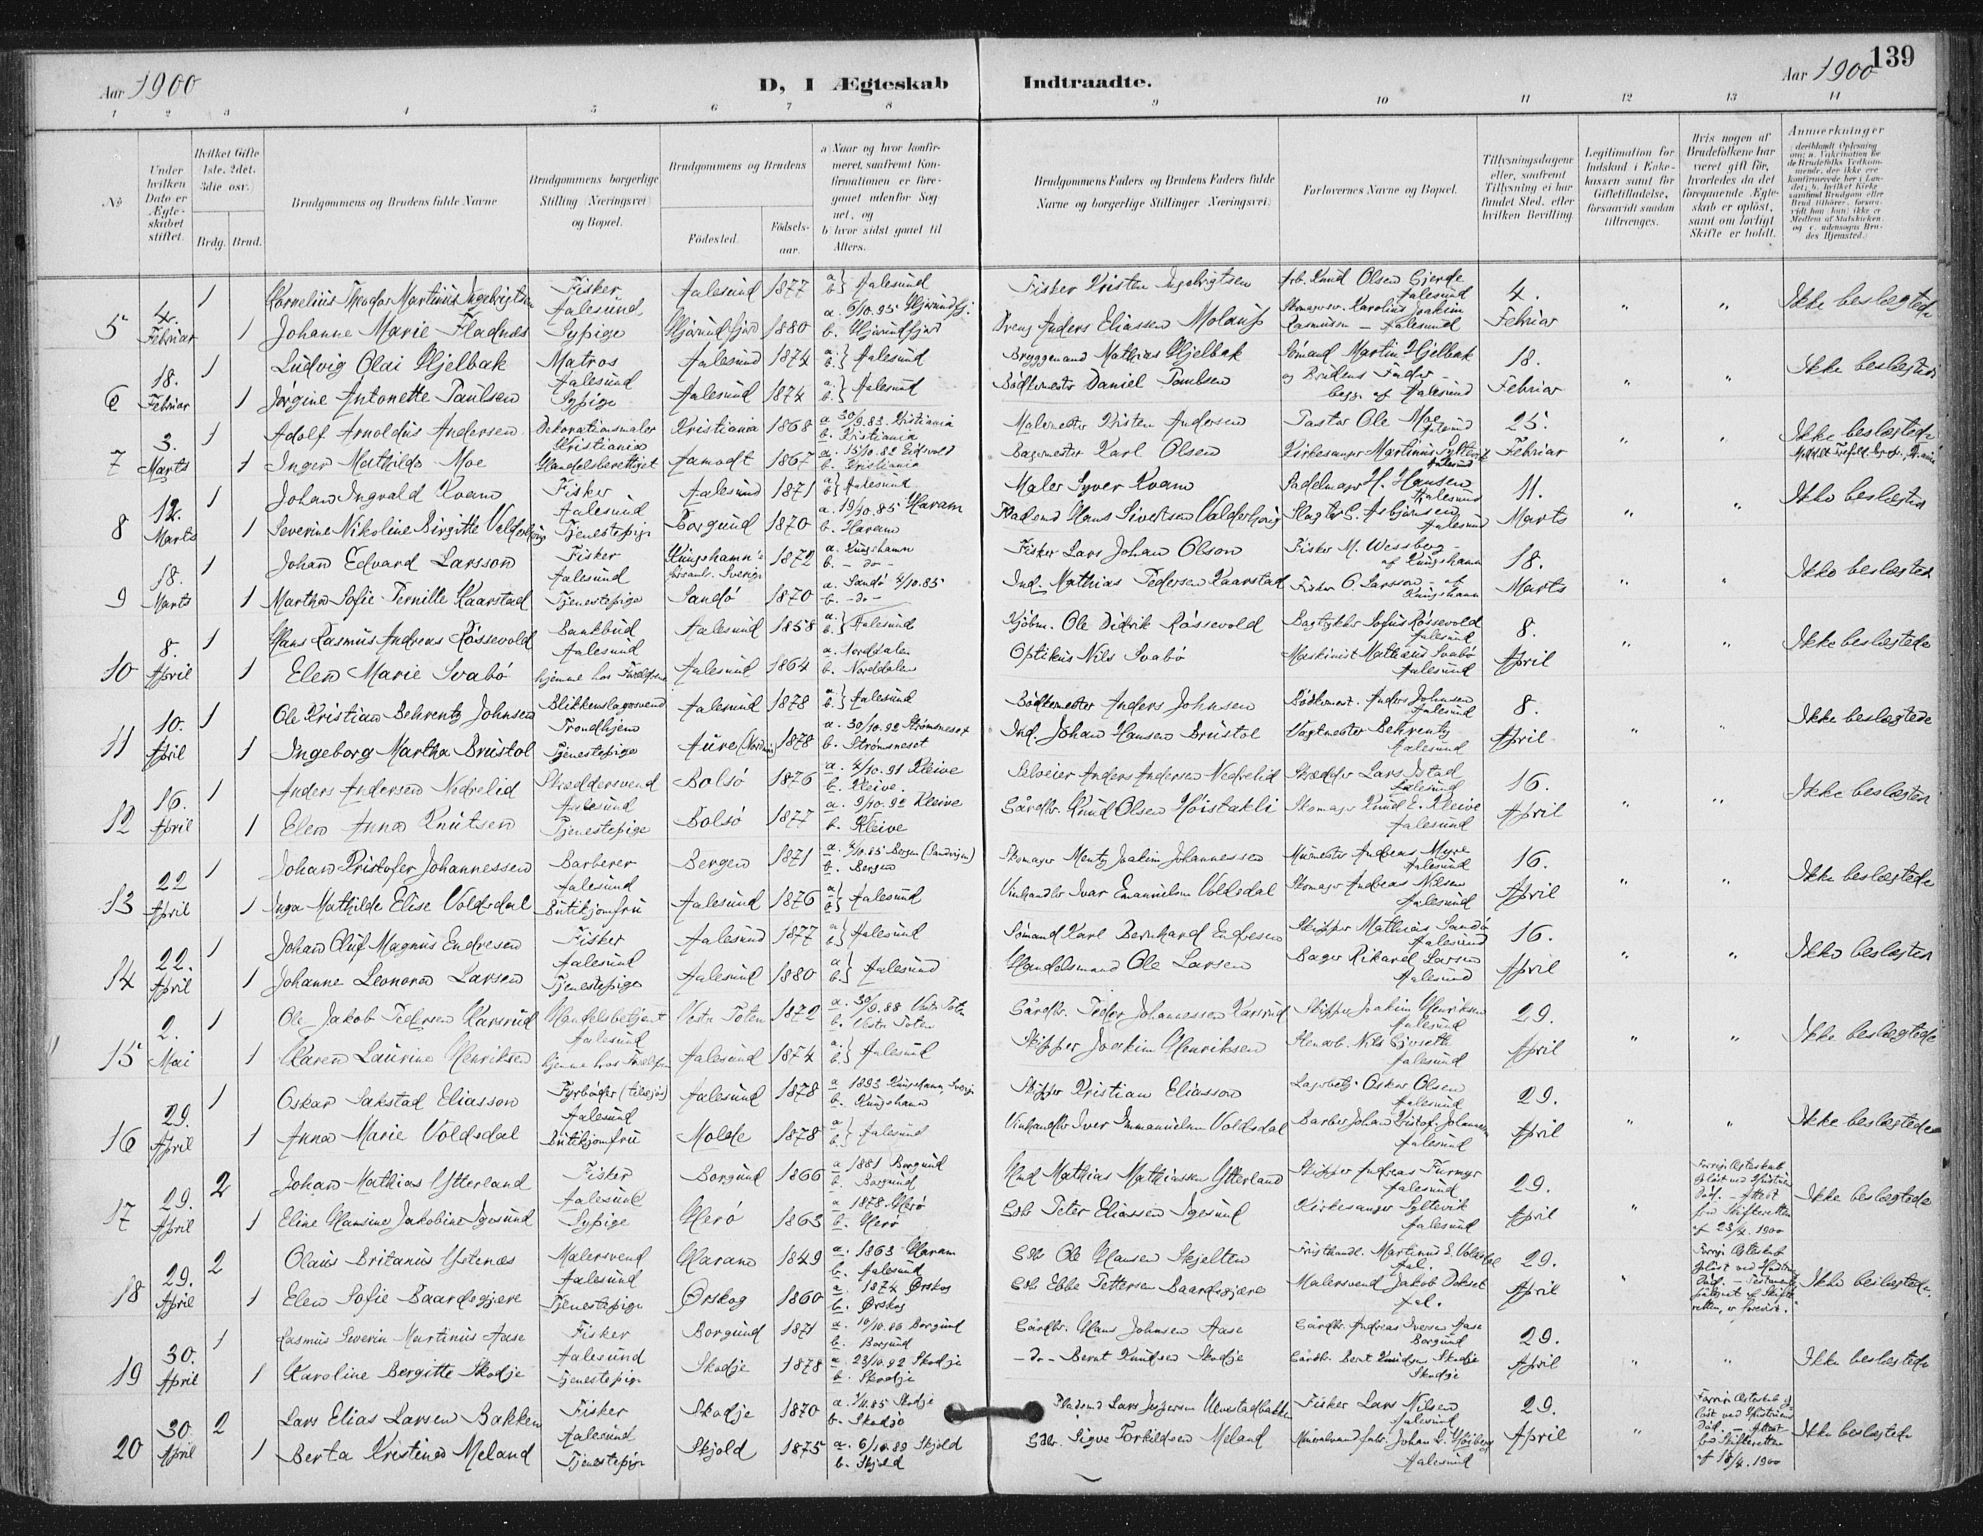 139
Aar 1900
D, I Ægteskab Indtraadte.
Aar 1900
1 2 3 4 5 6 7 8 9 10 11 12 13 14
№
Under hvilken Dato er Ægteskabet stiftet.
Hvilket Gifte 1ste, 2det, 3die osv.)
Brdg. Brud.
Brudgommens og Brudens fulde Navne
Brudgommens borgerlige Stilling (Næringsvei) og Bopæl.
Brudgommens og Brudens
Fødested.
Fødselsaar.
a) Naar og hvor konfirmeret, saafremt Konfirmationen er foregaaet udenfor Sognet, og
b) hvor sidst gaaet til Alters.
Brudgommens Faders og Brudens Faders fulde Navne og borgerlige Stillinger (Næringsvei)
Forlovernes Navne og Bopæl.
Tillysningsdagene eller, saafremt Tillysning ei har fundet Sted, efter hvilken Bevilling.
Legitimation for Indskud i Enkekassen samt for Giftetilladelse, forsaavidt saadan tiltrænges.
Hvis nogen af Brudefolkene har været gift før, hvorledes da det foregaaende Ægteskab er opløst, samt om lovligt Skifte er holdt.
Anmærkninger
5 4. Februar 1 Kornelius Theodor Martinius Ingebrigtsen Fisker Aalesund Aalesund 1877 a b} Aalesund Fisker Kristen Ingebrigtsen Arb. Knud Olsen Gjerde Aalesund 4. Februar " " Ikke beslægtede
1 Johanne Marie Fladnæs Sypige Hjørundfjord 1880 a. 6/10.95 Hjørundfj. b. Hjørundfjord Anders Eliassen Molaup Karolius Joakim Rasmussen - Aalesund
6 18. Februar 1 Ludvig Olai Hjelbak Matros Aalesund Aalesund 1874 a. b.} Aalesund Bryggemand Mathias Hjelbak Sømand Martin Hjelbak 18. Februar " " Ikke beslægtede
1 Jørgine Antonette Paulsen Sypige Aalesund 1874 a. b.} Aalesund Bødkermester Daniel Paulsen og Brudens Fader - begge af Aalesund
7 3. Marts 1 Adolf Arnoldus Andersen Dekorationsmaler Kristiania Kristiania 1868 a 30/9.83 Kristiania b. Kristiania Malermester Kristen Andersen Pastor Ole Moe 25. Februar " " Ikke beslægtede
1 Inger Mathilde Moe Handelsberettiget Aamodt 1867 a. 15/10.82 Eidsvold b. Kristiania Bagermester Karl Olsen Kirkesanger Martinus Syltevik Aalesund
8 12. Marts 1 Johan Ingvald Kvam Fisker Aalesund Aalesund 1871 a b} Aalesund Maler Syver Kvam Sadelmager H. Hansen Aalesund 11. Marts " " Ikke beslægtede
1 Severine Nikoline Birgitte Valderhaug Tjenestepige Borgund 1870 a. 19/10.85 Haram b. Haram Hans Sivertsen Valderhaug Slagter C. Asbjørnsen Aalesund
9 18. Marts 1 Johan Edvard Larsson Fisker Aalesund Kungshamn's 1872 a. Kungshamn b. - do - Fisker Lars Johan Olson Fisker M. Wessberg - af Kungshamn 18. Marts " " Ikke beslægtede
1 Martha Sofie Pernille Kaarstad Tjenestepige Sandö 1870 a. Sandö 4/10.85 b. - do - Ind. Mathias Pedersen Kaarstad Fisker O. Larsson - af Kungshamn
10 8. April 1 Hans Rasmus Andreas Røssevold Bankbud Aalesund Aalesund 1858 a. b.} Aalesund Kjøbm. Ole Didrik Røssevold Sofus Røssevold Aalesund 8. April " " Ikke beslægtede
1 Elen Marie Svabö hjemme hos Forældrene Aalesund 1864 a. Norddalen b. Norddalen Optikus Nils Svabö Maskinist Mathias Svabö Aalesund
11 10. April 1 Ole Kristian Behrentz Johnsen Blikkenslagersvend Trondhjem Aalesund 1878 a b} Aalesund Bødkermester Anders Johnsen Bødkermest. Anders Johnsen Aalesund 8. April " " Ikke beslægtede
1 Ingeborg Martha Brüstol Tjenestepige Aure 1878 a. 30/10.92 Strømsneset b. Strømsneset Ind. Johan Hansen Brüstol Vægtmester Behrentz Aalesund
12 16. April 1 Anders Andersen Nedrelid Skræddersvend Aalesund Bolsö 1876 a. 4/10.91 Kleive b. Kleive. Selveier Anders Andersen Nedrelid Skrædder Lars Istad Aalesund 16. April " " Ikke beslægtede
1 Elen Anna Knutsen Tjenestepige Bolsö 1877 a. 9/10.92 Kleive b. Kleive Gårdbr. Knud Olsen Høistakli Skomager Knud E. Kleive Aalesund
13 22 April 1 Johan Kristofer Johannessen Barberer Aalesund Bergen 1871 a. 4/10.85 Bergen (Sandviken) b. Bergen Skomager Mentz Joakim Johannessen Murmester Andreas Myre Aalesund 16. April " " Ikke beslægtede
1 Inga Mathilde Elise Voldsdal Butikjomfru Aalesund 1876 a b} Aalesund Vinhandler Ivar Emanuelsen Voldsdal Skomager Andreas Nilsen Aalesund
14 22. April 1 Johan Oluf Magnus Endresen Fisker Aalesund Aalesund 1877 a b} Aalesund Sømand Karl Bernhard Endresen Skipper Mathias Sandö Aalesund 16. April " " Ikke beslægtede
1 Johanne Leonora Larsen Tjenestepige Aalesund 1880 a b} Aalesund Handelsmand Ole Larsen Bager Rikard Larsen Aalesund
15 2. Mai 1 Ole Jakob Pedersen Karsrud Handelsbetjent Aalesund Vestre Toten 1872 a. 30/9.88 Vestre Toten b. Vestre Toten Gårdbr. Peder Johannessen Karsrud Skipper Joakim Henriksen Aalesund 29. April " " Ikke beslægtede
1 Karen Laurine Henriksen hjemme hos Forældrene Aalesund 1874 a. b.} Aalesund Skipper Joakim Henriksen Stenarb. Nils Gjerseth Aalesund
16 29. April 1 Oskar Sakstad Eliasson Fyrbøder (tilsjøs) Aalesund Aalesund 1878 a 1893 Kungshamn, Sverige b. Kungshamn Skipper Kristian Eliasson Lagerbetj. Oskar Olsen Aalesund 29. April " " Ikke beslægtede
1 Anna Marie Voldsdal Butikjomfru Molde 1878 a b} Aalesund Vinhandler Iver Immanuelsen Voldsdal Barber Johan Kristof. Johannessen Aalesund
17 29. April 2 Johan Mathias Ytterland Fisker Aalesund Borgund 1866 a 1881 Borgund b. Borgund Mathias Mathiassen Ytterland Skipper Andreas Furmyr Aalesund 29. April " Forrige Ægteskab opløst ved Hustruens Død. - Attest fra Skifteretten af 23/4. 1900 Ikke beslægtede
1 Eline Hansine Jakobine Igesund Sypige Herö 1863 a 1878 Herö b. Herö Gdb. Peter Eliassen Igesund Kirkesanger Syltevik Aalesund
18 29. April 2 Olaus Britanus Ystenæs Malersvend Aalesund Haram 1849 a. 1863 Haram b. Aalesund Gdb. Ole Hansen Skjelten Martinus E. Voldsdal Aal. 29. April " Forrige Ægteskab opløst ved Hustruens Død. - Testament påtegnet af Skifteretten, er forevist. Ikke beslægtede.
1 Elen Sofie Baardsgjære Tjenestepige Ørskog 1860 a. 1874 Ørskog b. Ørskog Gdb Ebbe Pettersen Baardsgjære Malersvend Jakob Dokset Aal.
19 30. April 1 Rasmus Severin Martinus Aase Fisker Aalesund Borgund 1871 a. 10/10.86 Borgund b. Borgund Gårdbr. Hans Johnsen Aase Gårdbr. Andreas Iversen Aase Borgund 29. April " " Ikke beslægtede
1 Karoline Bergitte Skodje Tjenestepige Skodje 1878 a. 23/10.92 Skodje b. Skodje - do - Bernt Knudsen Skodje Gårdbr. Bernt Knudsen Skodje Skodje
20 30 April 2 Lars Elias Larsen Bakken Fisker Aalesund Skodje 1870 a. 1/11.85 Skodje b. Skodje Pladsmd Lars Jespersen Fisker Lars Nilsen Aalesund 29. April Forrige Ægteskab opløst ved Hustruens Død. - Attest fra Skifteretten af 18/4. 1900 Ikke beslægtede
1 Berta Kristina Meland Tjenestepige Skjold 1875 a. 6/10.89 Skjold b. Skjold Gdb. Sigve Torkildsen Meland Mineralvandfabr. Johan L. Aalesund